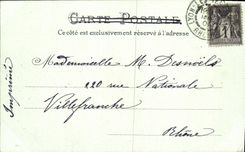 CARTE POSTALE
Ce côté est exclusivement réservé à l'adresse
Mademoiselle M. Desnoëls
220 rue Nationale
Villefranche
Rhône
Imprimé